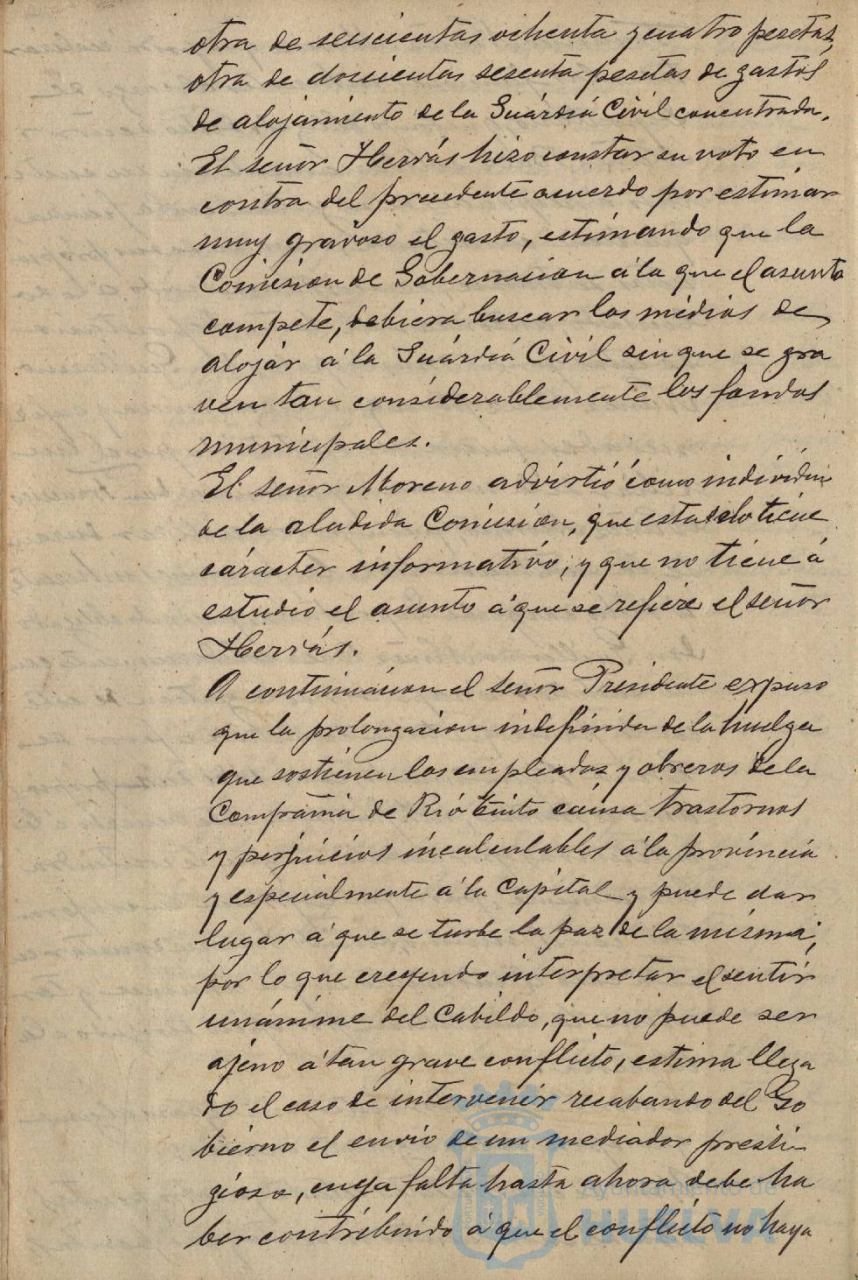 otra de seiscientas ochenta y cuatro pesetas,
otra de doscientas sesenta pesetas de gastos
de alojamiento de la Guárdia Civil concentrada.
El señor Herrás hizo constar su voto en
contra del precedente acuerdo por estimar
muy gravoso el gasto, estimando que la
Comision de Gobernacion á la que el asunto
compete, debiera buscar los medios de
alojar á la Guárdia Civil sin que se gra
ven tan considerablemente los fondos
municipales.
El señor Moreno advirtió como individuo
de la aludida Comision, que esta solo tiene
carácter informativo, y que no tiene á
estudio el asunto á que se refiere el señor
Herrás.
A continuacion el señor Presidente expuso
que la prolongacion indefinida de la huelga
que sostienen los empleados y obreros de la
Compañia de Rio tinto causa trastornos
y perjuicios incalculables á la provincia
y especialmente á la Capital y puede dar
lugar á que se turbe la paz de la misma;
por lo que creyendo interpretar el sentir
unánime del Cabildo, que no puede ser
ajeno á tan grave conflicto, estima llega
do el caso de intervenir recabando del Go
bierno el envio de un mediador presti
gioso, cuya falta hasta ahora debe ha
ber contribuido á que el conflicto no haya
Ayuntamiento de
HUELVA